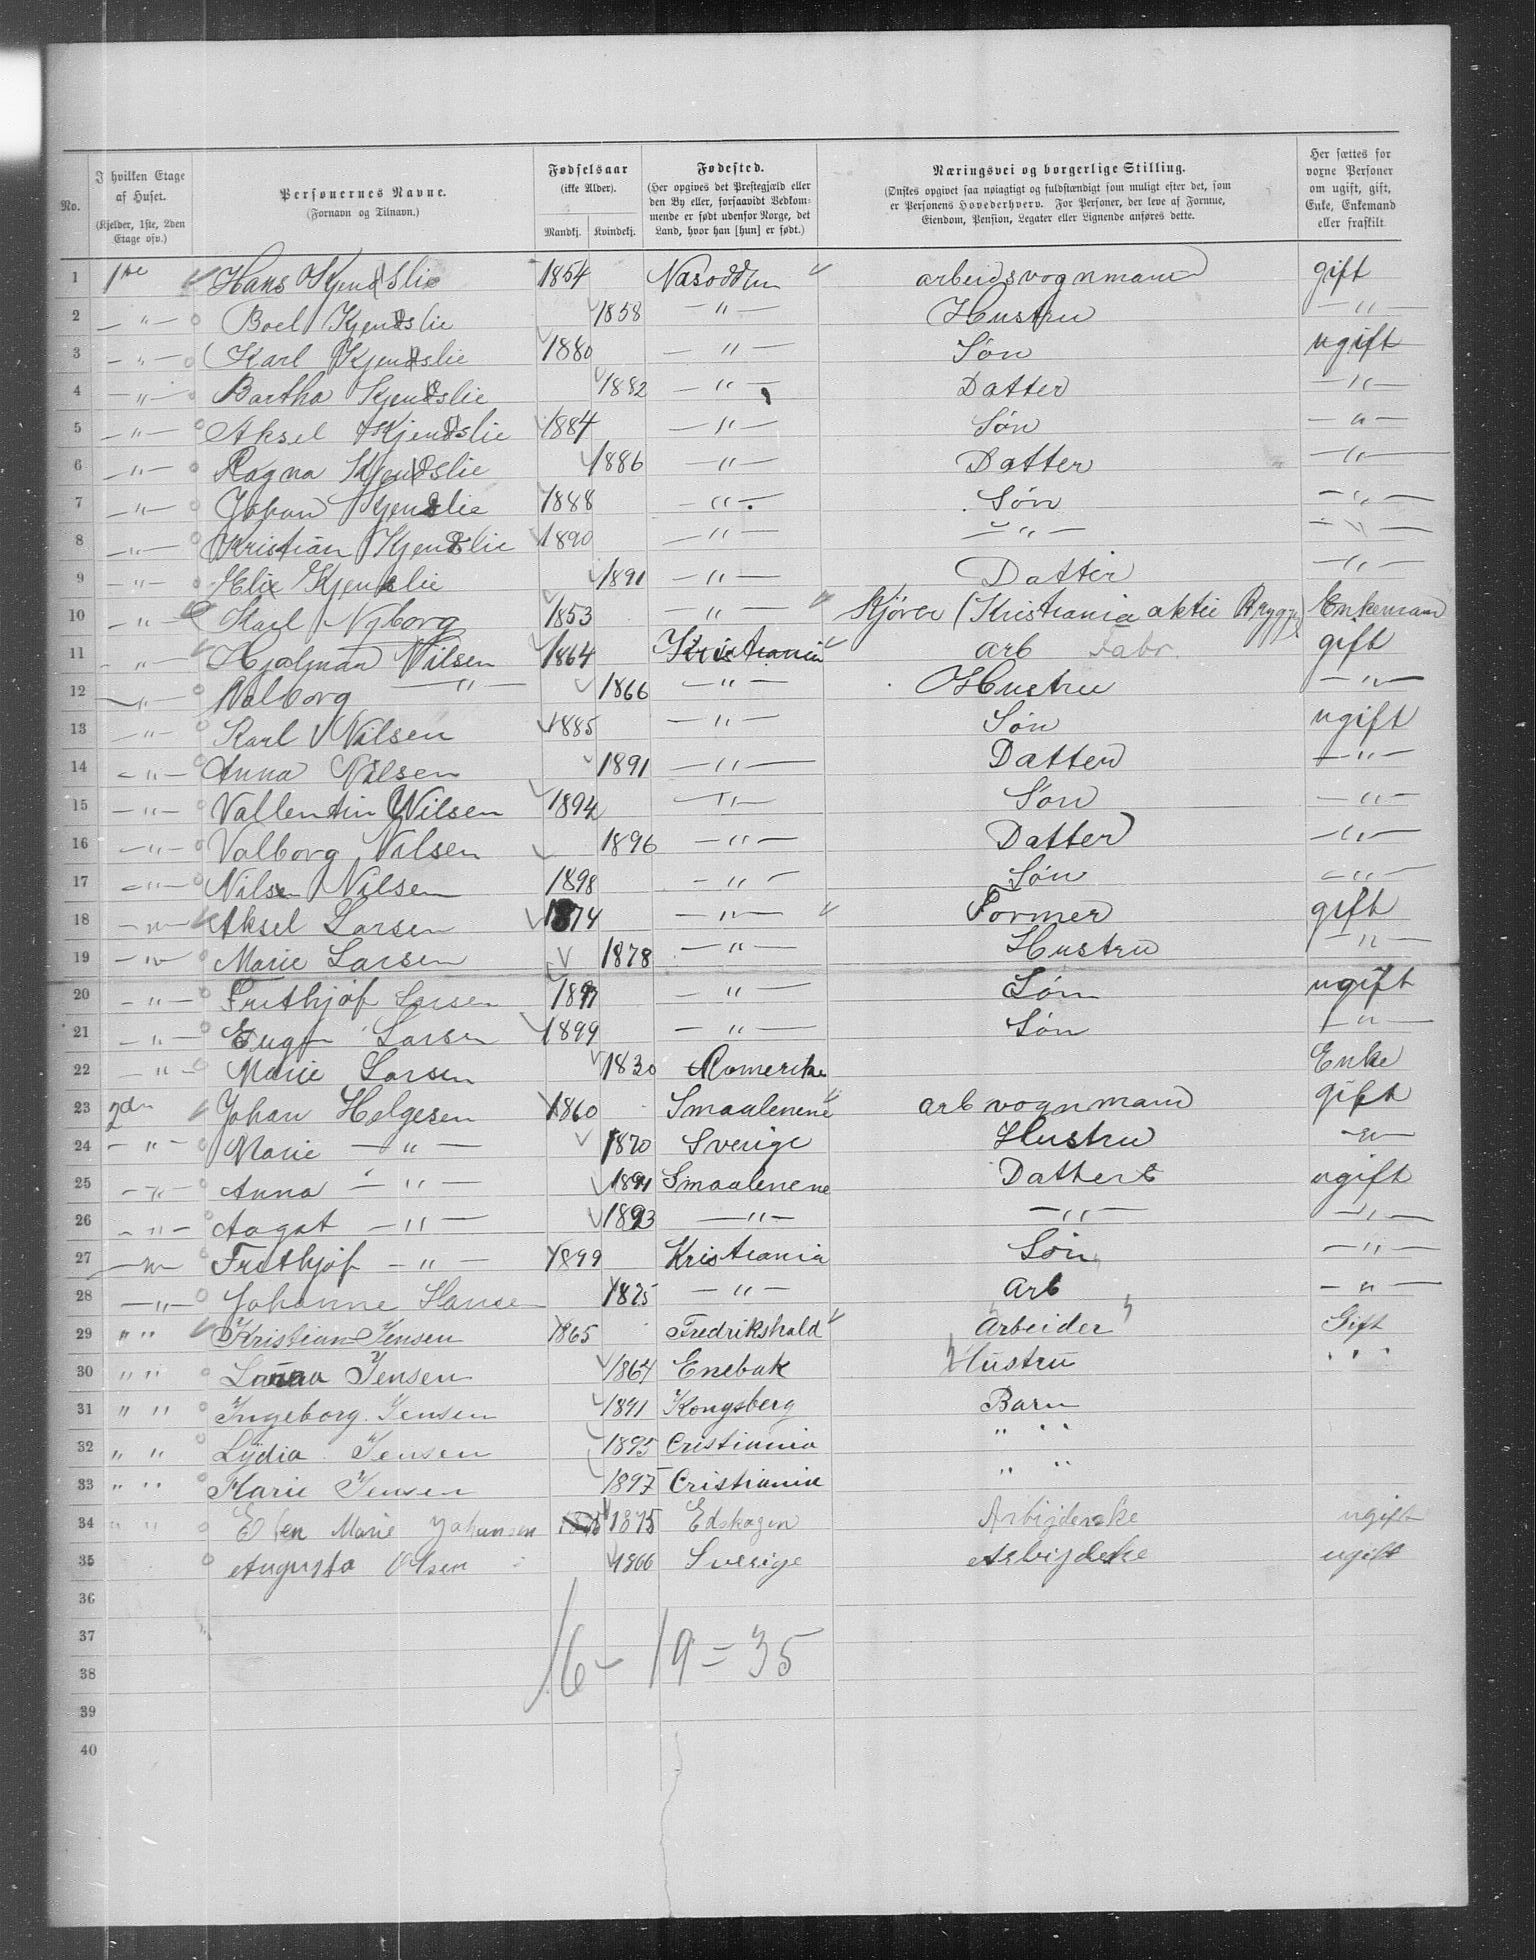 No. I hvilken Etage af Huset. (Kjelder, 1ste, 2den Etage osv.) Personernes Navne. (Fornavn og Tilnavn.) Fødselsaar (ikke Alder). Mandkj. Kvindekj. Fødested. (Her opgives det Prestegjæld eller den By eller, forsaavidt Vedkommende er født udenfor Norge, det Land, hvor han [hun] er født.) Næringsvei og borgerlige Stilling. (Ønskes opgivet saa nøiagtigt og fuldstændigt som muligt efter det, som er Personens Hovederhverv. For Personer, der leve af Formue, Eiendom, Pension, Legater eller Lignende anføres dette. Her sættes for voxne Personer om ugift, gift, Enke, Enkemand eller fraskilt.
1 1ste Hans Kjendslie 1854 Nasodden arbeidsvognmann gift
2 —"— Boel Kjendslie 1858 —"— Hustru —"—
3 —"— Karl Kjendslie 1880 —"— Søn ugift
4 —"— Bartha Kjendslie 1882 —"— Datter —"—
5 —"— Aksel Kjendslie 1884 —"— Søn —"—
6 —"— Ragna Kjendslie 1886 —"— Datter —"—
7 —"— Johan Kjenslie 1888 —"— Søn —"—
8 —"— Kristian Kjenslie 1890 —"— —"— —"—
9 —"— Elie Kjenslie 1891 —"— Datter —"—
10 —"— Karl Nyborg 1853 —"— Kjører (Kristiania aktie Brygge) Enkemand
11 —"— Hjalmar Nilsen 1864 Kristiania arb Fabr. gift
12 —"— Valborg —"— 1866 —"— Hustru —"—
13 —"— Karl Nilsen 1885 —"— Søn ugift
14 —"— Anna Nilsen 1891 —"— Datter —"—
15 —"— Vallentin Nilsen 1894 —"— Søn —"—
16 —"— Valborg Nilsen 1896 —"— Datter —"—
17 —"— Nils Nilsen 1898 —"— Søn —"—
18 —"— Aksel Larsen 1874 —"— Former gift
19 —"— Marie Larsen 1878 —"— Hustru —"—
20 —"— Frithjof Larsen 1897 —"— Søn ugift
21 —"— Eugen Larsen 1899 —"— Søn —"—
22 —"— Marie Larsen 1830 Romerike Enke
23 2den Johan Helgesen 1860 Smaalenene arb vognmand gift
24 —"— Marie —"— 1870 Sverige Hustru —"—
25 —"— Anna —"— 1891 Smaalenene Datter ugift
26 —"— Aagot —"— 1893 —"— —"— —"—
27 —"— Frithjof —"— 1899 Kristiania Søn —"—
28 —"— Johanne Hansen 1875 —"— Arb —"—
29 " " Kristian Jensen 1865 Fredrikshald Arbeider Gift
30 " " Jensen 1864 Enebak Hustru " "
31 " " Ingeborg Jensen 1891 Kongsberg Barn
32 " " Lydia Jensen 1895 Cristiania " "
33 " " Marie Jensen 1897 Cristiania " "
34 " " Marie Johansen 1875 Edskogen Arbijderske ugift
35 Augusta Olsen 1866 Sverige Arbijdeske ugift
36
37
16 – 19 = 35
38
39
40